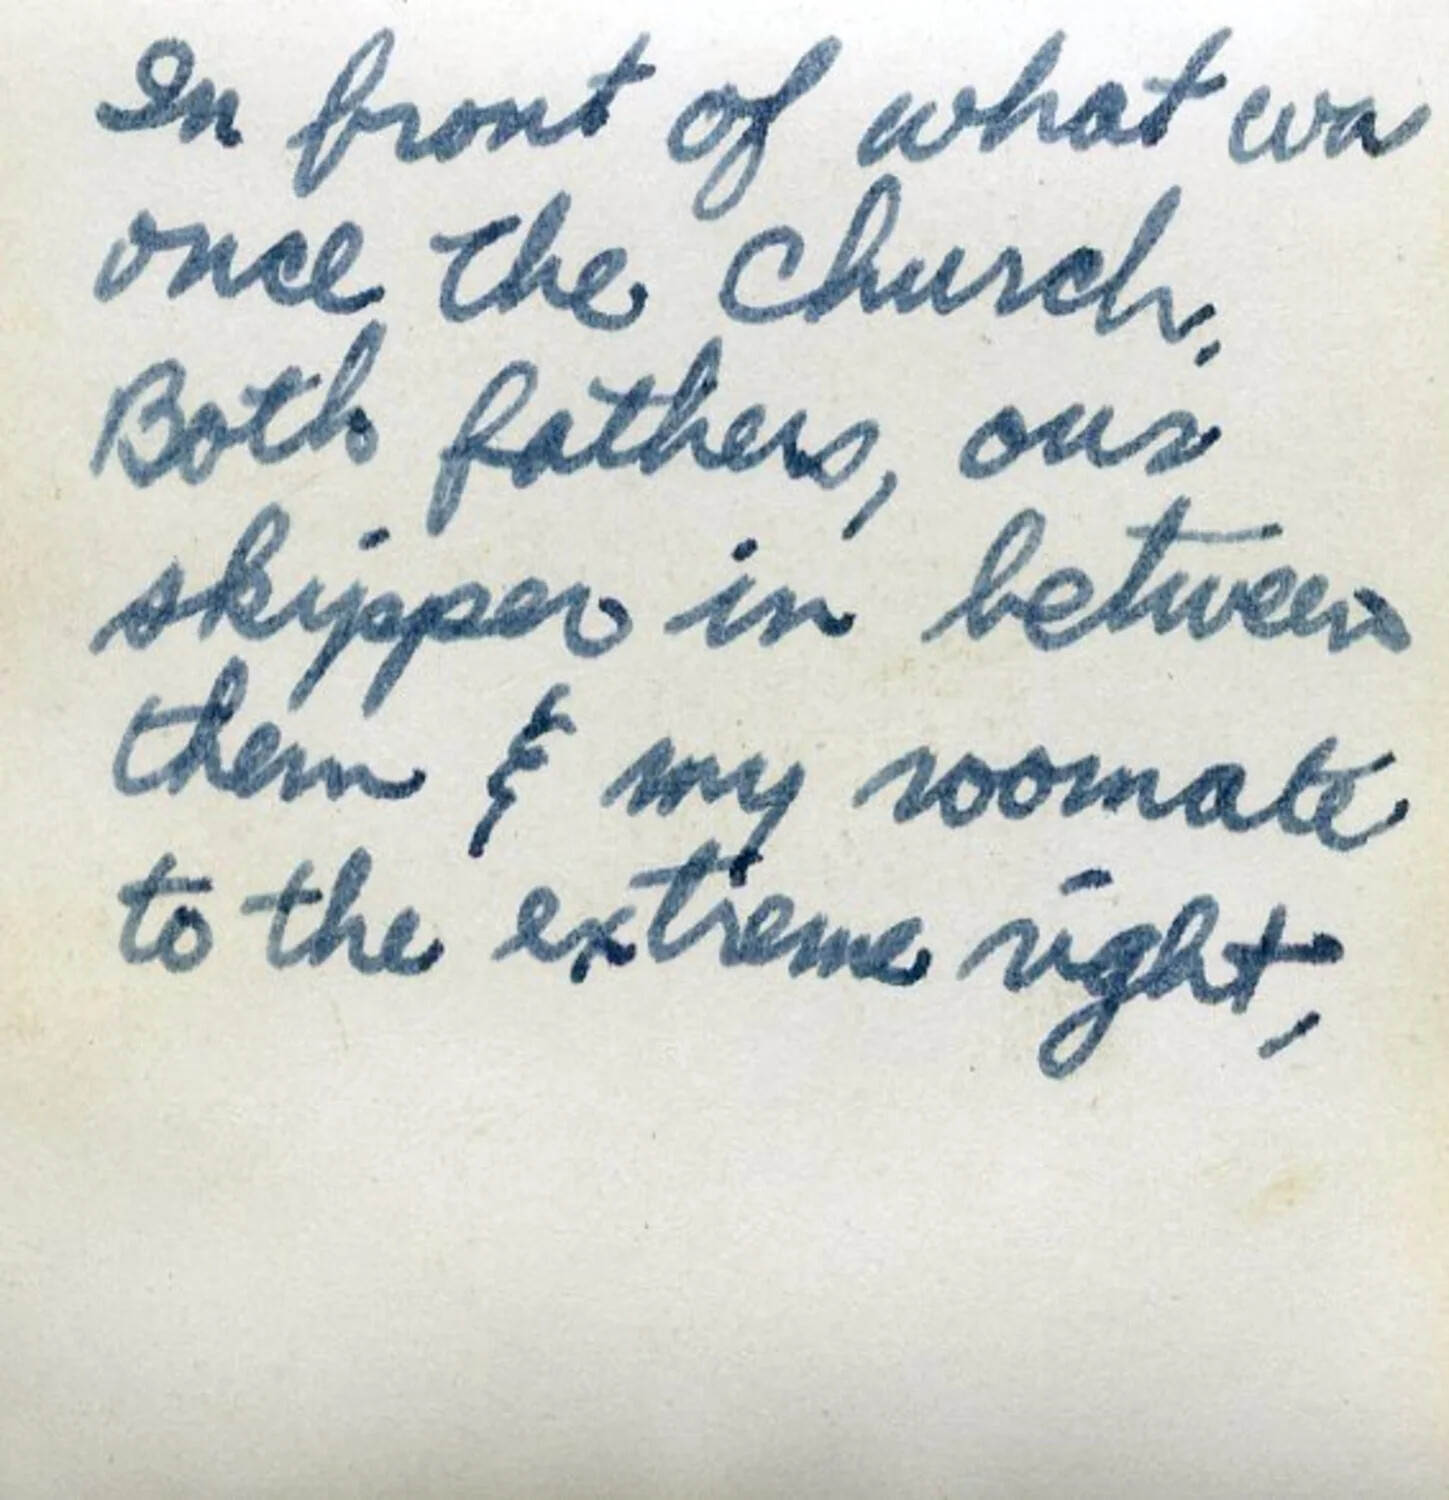 In front of what wa
once the Church.
Both fathers, our
skipper in between
them & my roomate
to the extreme right,